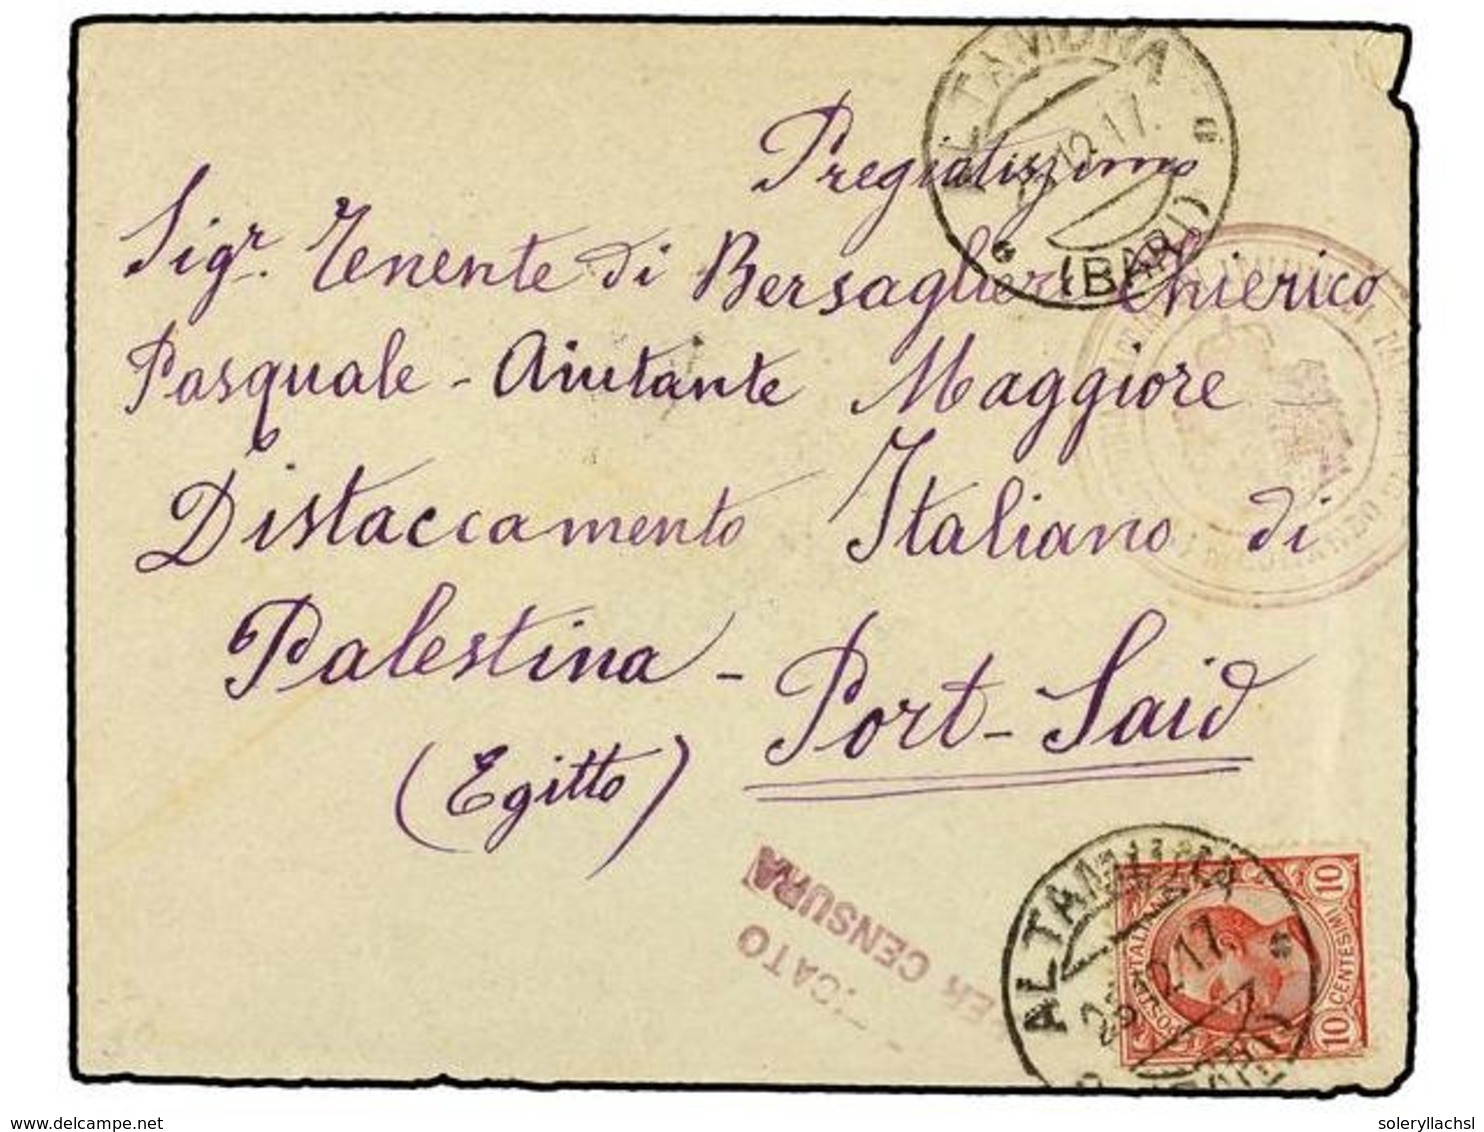 ALTAMURA
12.17.
(BARI)
Pregiatissimo
Sigr. Tenente di Bersaglieri Chierico
Pasquale - Aiutante Maggiore
Distaccamento Italiano di
Palestina - Port-Said
(Egitto)
PER CENSURA
ALTAMURA
12.17.
(BARI)
POSTE ITALIANE
10 CENTESIMI 10
soleryllachsl